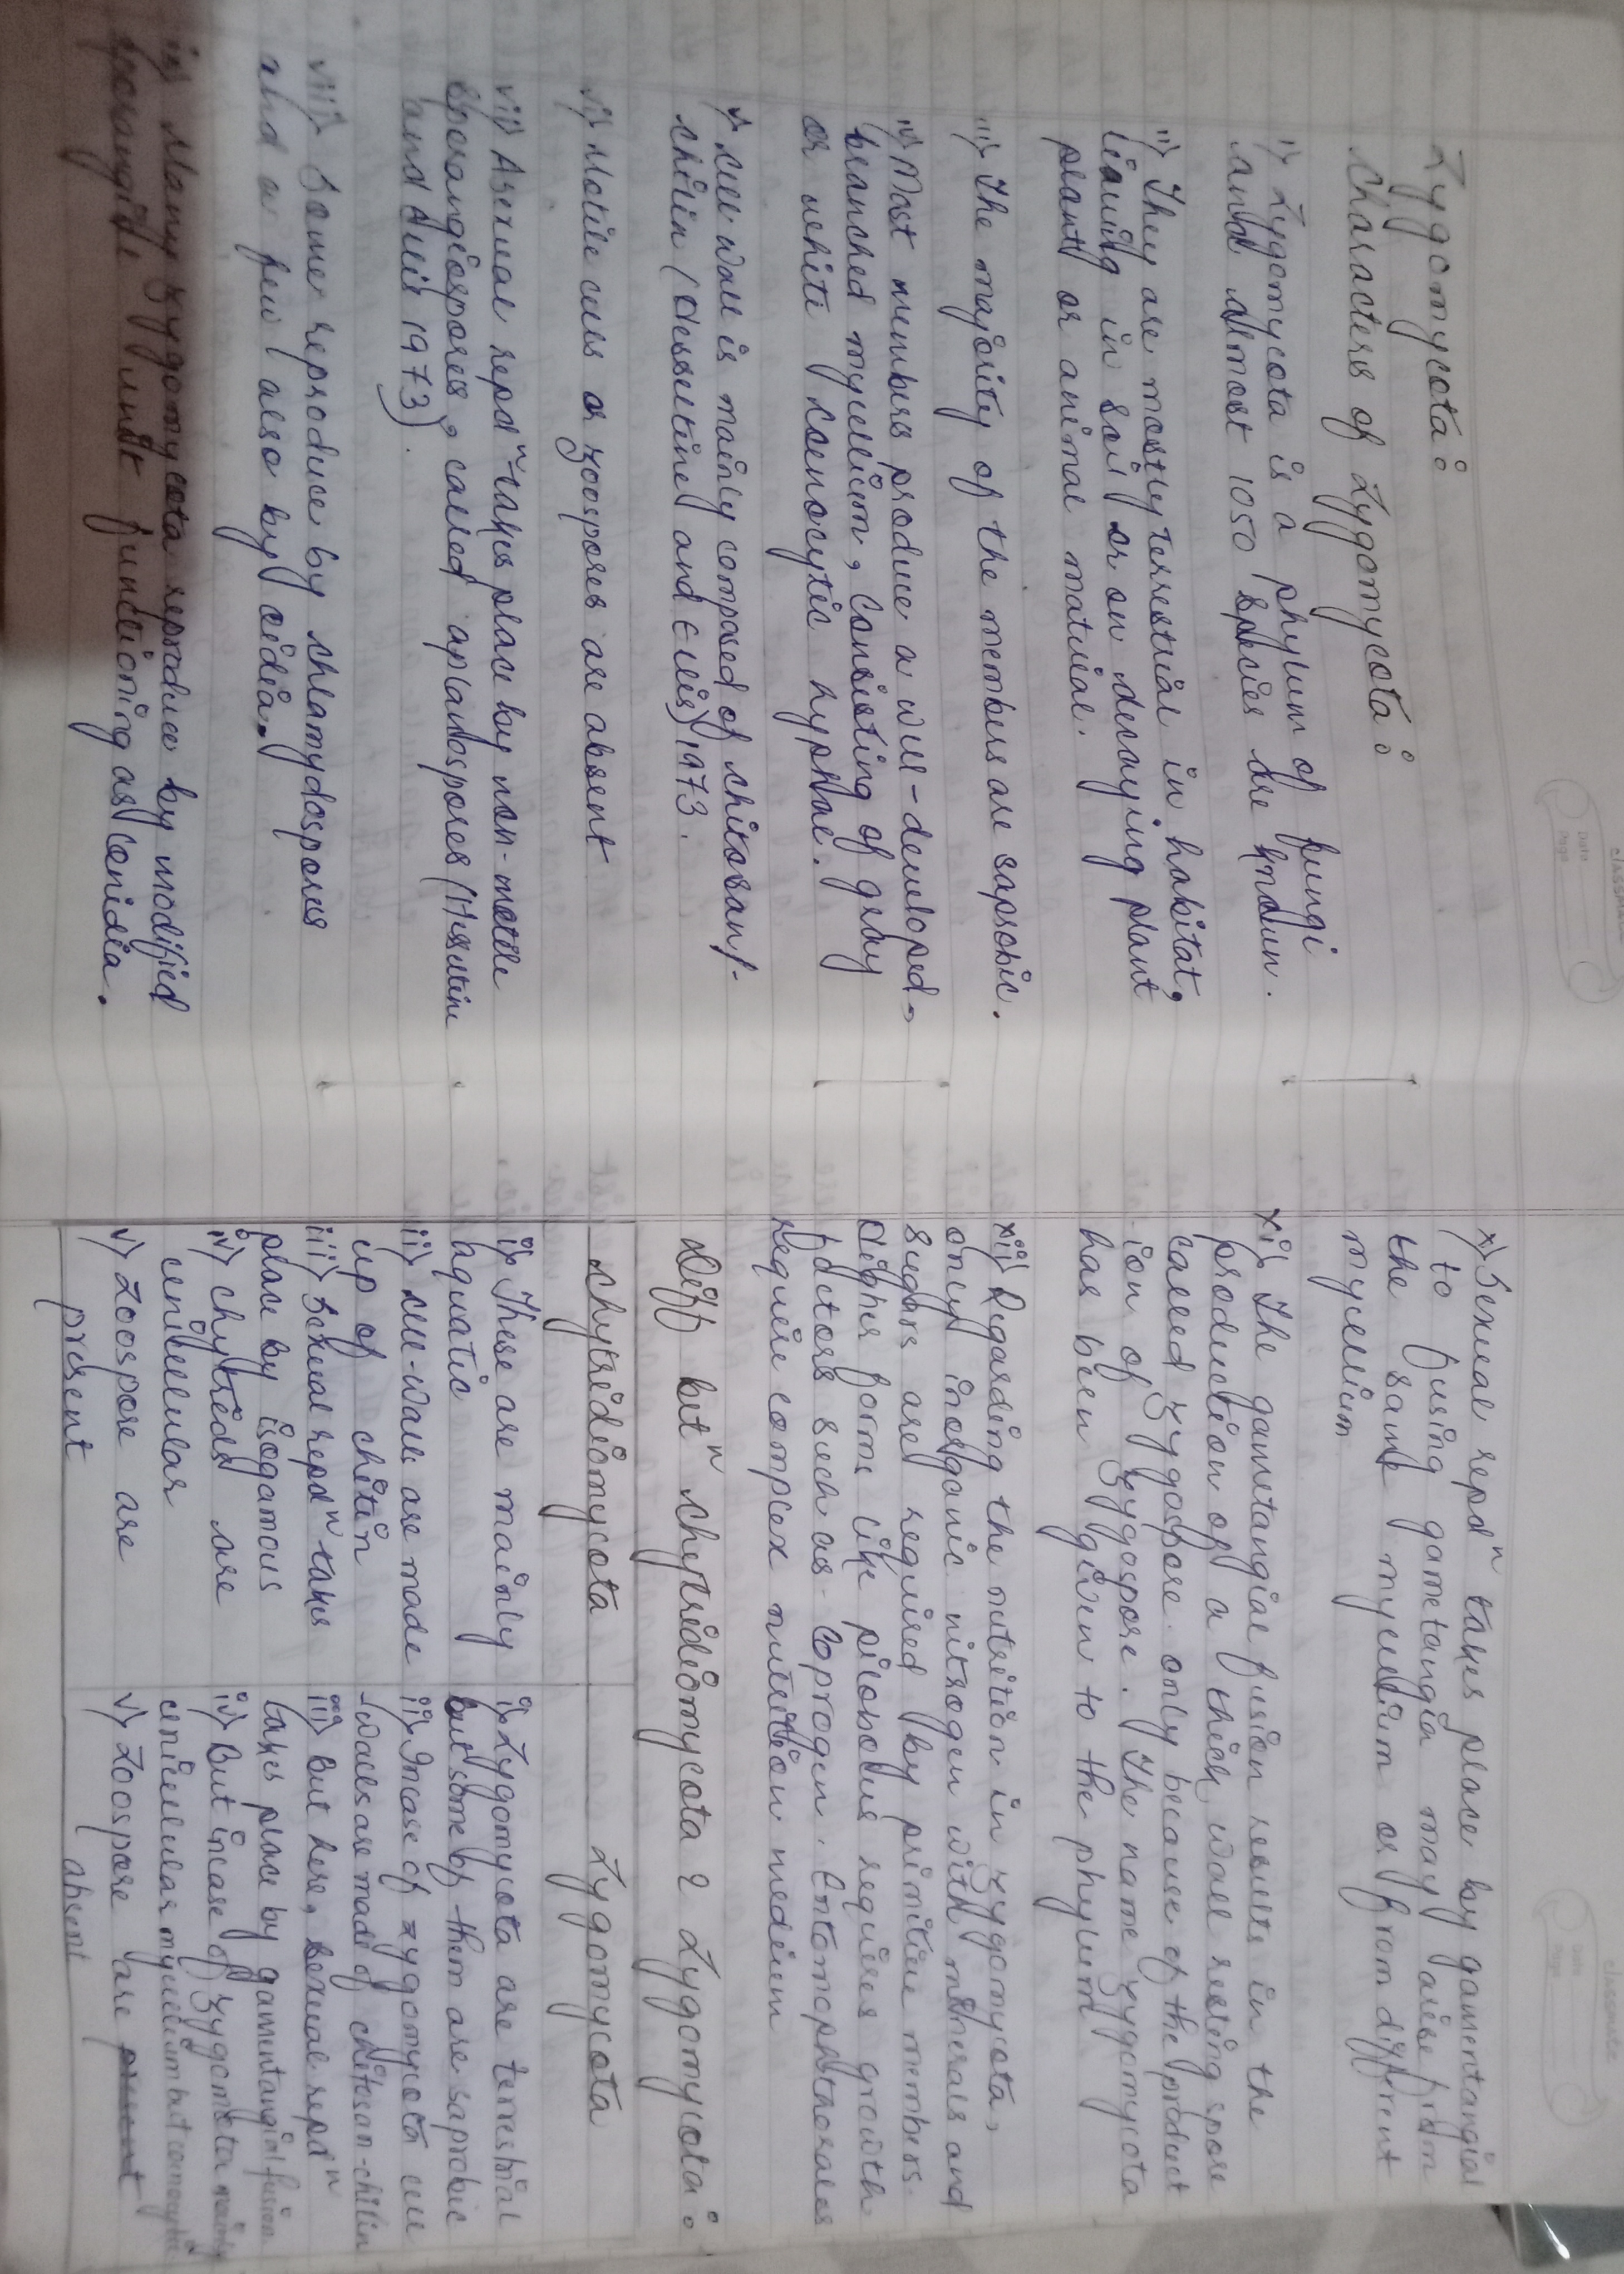 Zygomycota:
Characters of Zygomycota:
i) Zygomycota is a phylum of fungi
and almost 1050 species are known.
ii) They are mostly terrestrial in habitat,
living in soil or on decaying plant
plant or animal material.
iii) The majority of the members are saprobic.
iv) Most members produce a well-developed
branched mycelium, consisting of gray
or white coenocytic hyphae.
v) Cell wall is mainly composed of chitosan/-
chitin (Hesseltine and Ellis) 1973.
vi) Motile cells or zoospores are absent
vii) Asexual repdⁿ takes place by non-motile
sporangiospores, called aplanospores (Hesseltine
and Ellis 1973).
viii) Some reproduce by chlamydospores
and a few also by oidia.
ix) Many zygomycota reproduce by modified
sporangide unit functioning as conidia.
x) Sexual repdⁿ takes place by gamentangial
to fusing gametangia may arise from
the same mycelium or from diffrent
mycelium
xi) The gametangial fusion results in the
production of a thick wall resting spore
called zygospore. only because of the product
ion of zygospore. The name zygomycota
has been given to the phylum
xii) Regarding the nutrition in zygomycota,
only inorganic nitrogen with minerals and
sugars are required by primitive members.
Higher forms like pilobolus requires growth
factors such as coprogen. Entomophthorales
require complex nutrition medium
Diff betⁿ chytridiomycota & Zygomycota:
Chytridiomycota
Zygomycota
i) These are mainly
aquatic
ii) cell-walls are made
up of chitin
iii) Sexual repdⁿ takes
place by isogamous
iv) chytrids are
unicellular
v) Zoospore are
present
i) Zygomycota are terrestrial
but some of them are saprobic
ii) Incase of zygomycota cell
-walls are made of chitosan-chitin
iii) But here, sexual repdⁿ
takes place by gamentangial fusion
iv) But incase of zygomcota mainly
unicellular mycelium but coenocytic
v) Zoospore are present
absent
classmate
Date
Page
classmate
Date
Page